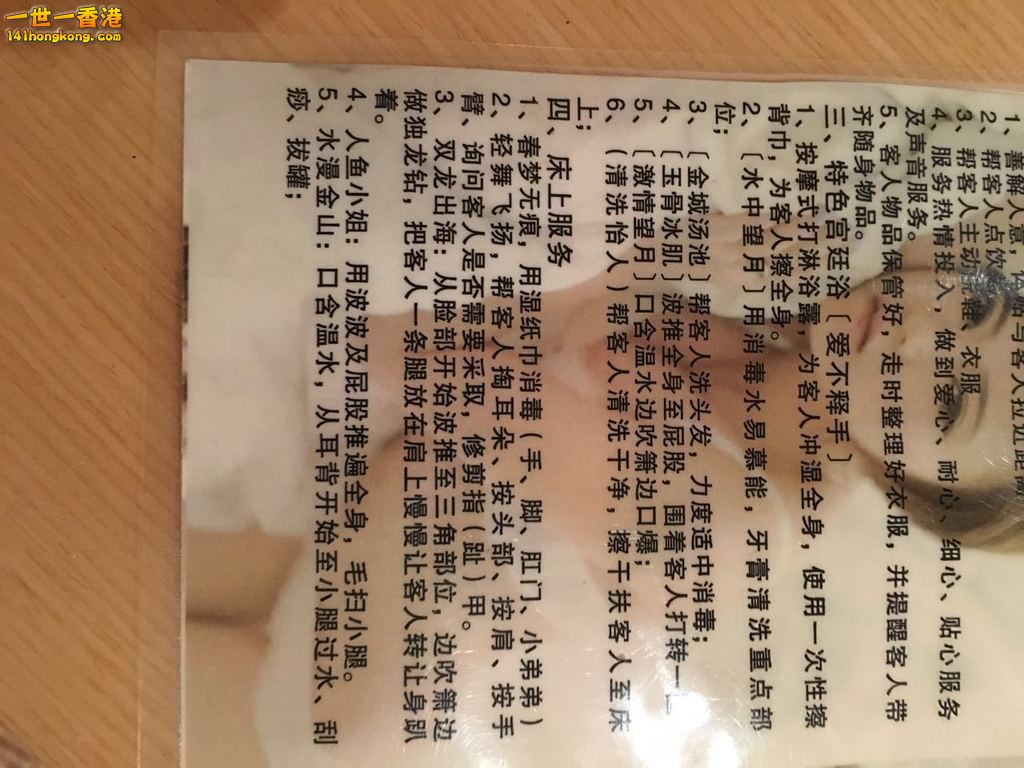 一世一香港
141hongkong.com
1、善解人意，
与客人拉近距离
2、帮客人点饮
3、帮客人主动
、衣服
4、服务热情投入，做到爱心、耐心、细心、贴心服务
及声音服务。
5、客人物品保管好，走时整理好衣服，并提醒客人带
齐随身物品。
三、特色宫廷浴〔爱不释手〕
1、按摩式打淋浴露，为客人冲湿全身，使用一次性擦
背巾，为客人擦全身。
2、〔水中望月〕用消毒水易慕能，牙膏清洗重点部
位；
3、〔金城汤池〕帮客人洗头发，力度适中消毒；
4、〔玉骨冰肌〕波推全身至屁股，围着客人打转一
5、〔激情望月〕口含温水边吹箫边口爆；
6、（清洗怡人）帮客人清洗干净，擦干扶客人至床
上；
四、床上服务
1、春梦无痕，用湿纸巾消毒（手、脚、肛门、小弟弟）
2、轻舞飞扬，帮客人掏耳朵、按头部、按肩、按手
臂、询问客人是否需要采取，修剪指（趾）甲。
3、双龙出海：从脸部开始波推至三角部位，边吹箫边
做独龙钻，把客人一条腿放在肩上慢慢让客人转让身趴
着。
4、人鱼小姐：用波波及屁股推遍全身，毛扫小腿。
5、水漫金山：口含温水，从耳背开始至小腿过水、刮
痧、拔罐；